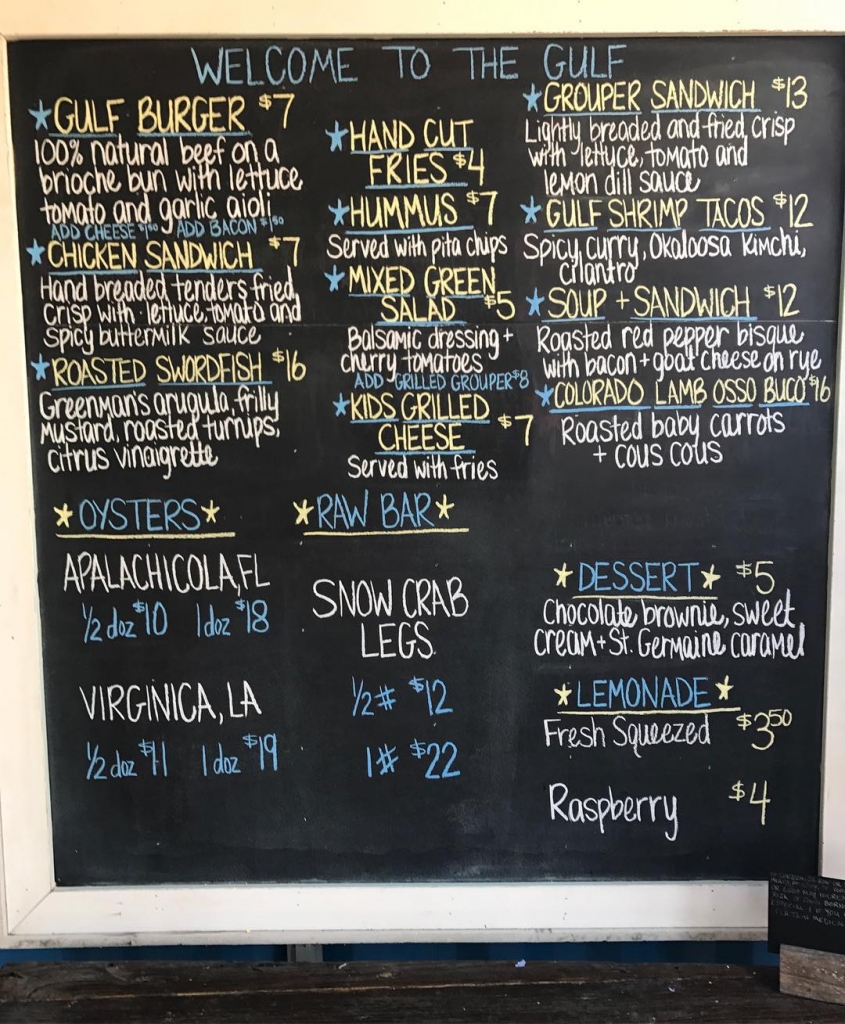 WELCOME TO THE GULF
★GULF BURGER $7
100% natural beef on a
brioche bun with lettuce
tomato and garlic aioli
ADD CHEESE $1.50 ADD BACON $1.50
★CHICKEN SANDWICH $7
Hand breaded tenders fried
crisp with lettuce, tomato and
spicy buttermilk sauce
★ROASTED SWORDFISH $16
Greenman's arugula, frilly
mustard, roasted turnips,
citrus vinaigrette
★HAND CUT
FRIES $4
★HUMMUS $7
Served with pita chips
★MIXED GREEN
SALAD $5
Balsamic dressing +
cherry tomatoes
ADD GRILLED GROUPER $8
★KIDS GRILLED
CHEESE $7
Served with fries
★GROUPER SANDWICH $13
Lightly breaded and fried, crisp
with lettuce, tomato and
lemon dill sauce
★GULF SHRIMP TACOS $12
Spicy curry, Okaloosa Kimchi,
cilantro
★SOUP + SANDWICH $12
Roasted red pepper bisque
with bacon + goat cheese on rye
★COLORADO LAMB OSSO BUCO $16
Roasted baby carrots
+ cous cous
★OYSTERS★
APALACHICOLA, FL
1/2 doz $10 1 doz $18
VIRGINICA, LA
1/2 doz $11 1 doz $19
★RAW BAR★
SNOW CRAB
LEGS
1/2# $12
1# $22
★DESSERT★ $5
Chocolate brownie, sweet
cream + St. Germaine caramel
★LEMONADE★
Fresh Squeezed $3.50
Raspberry $4